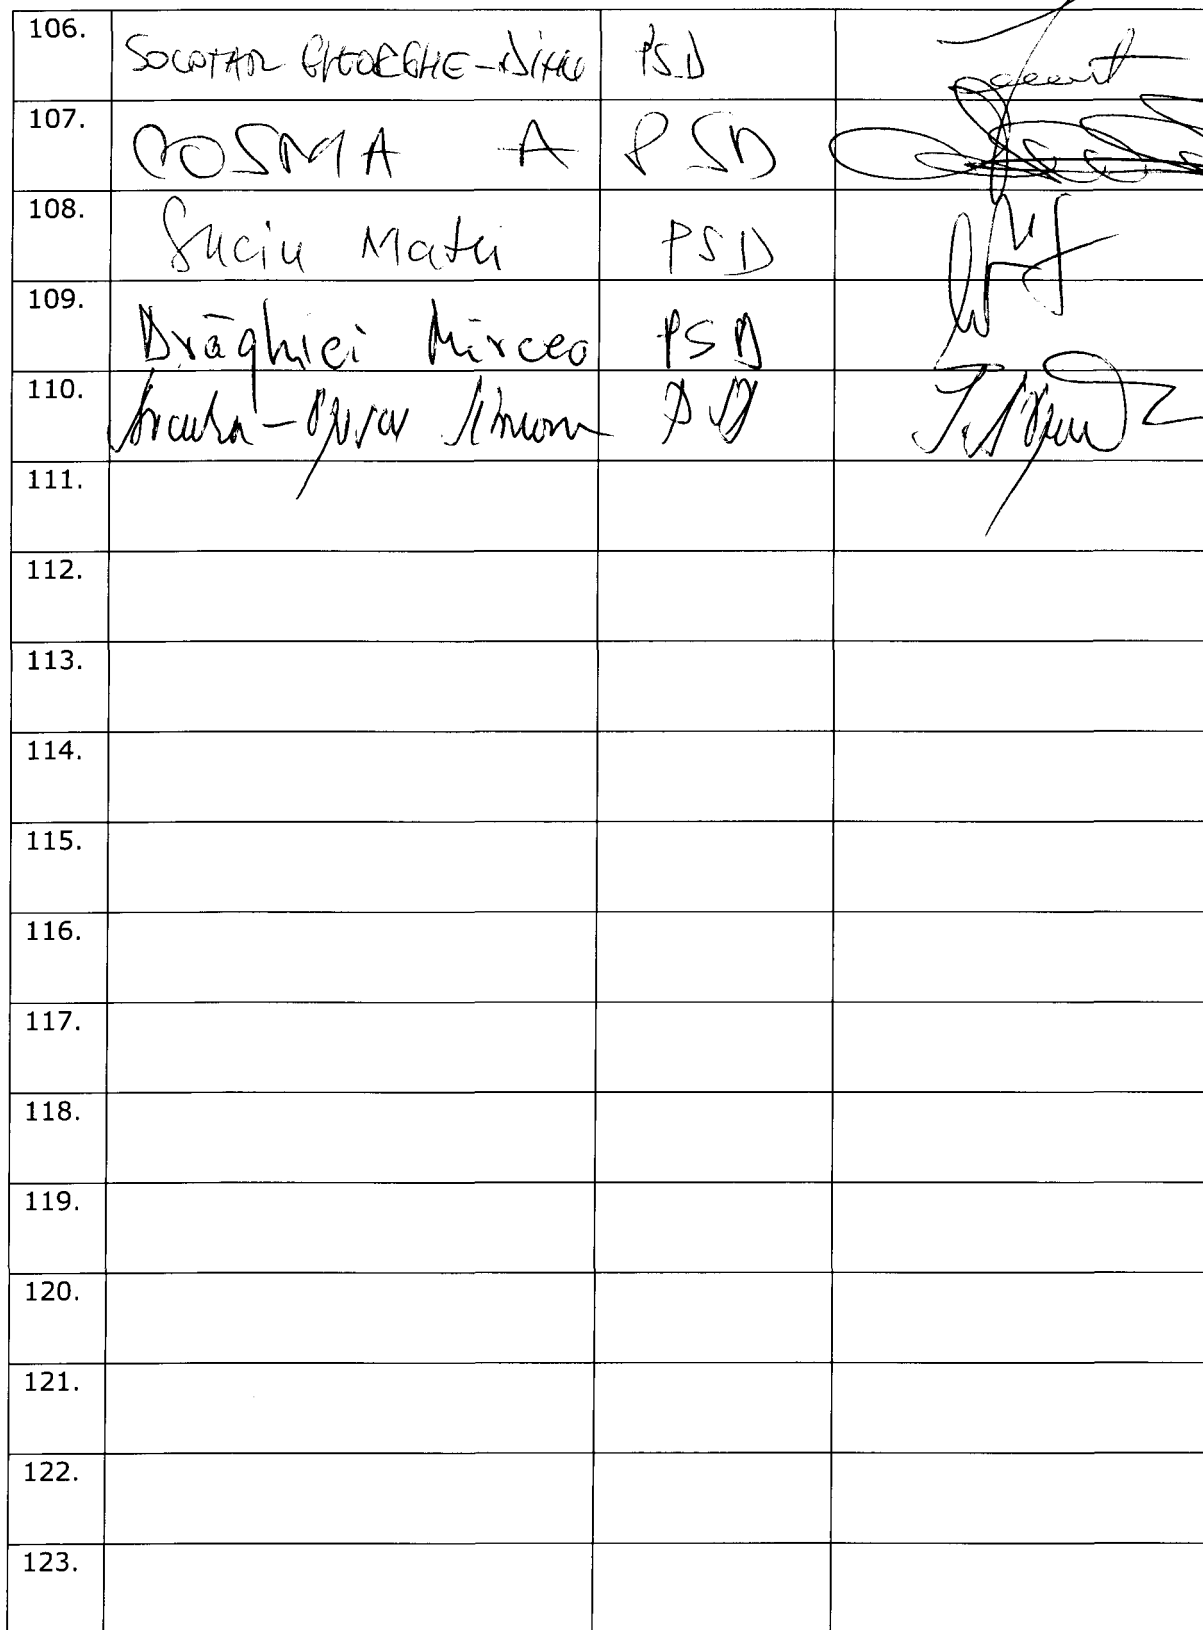 106. SOCOTAR GHEORGHE-DINU PSD
107. COSMA A PSD
108. Suciu Matei PSD
109. Drăghici Mircea PSD
110.
111.
112.
113.
114.
115.
116.
117.
118.
119.
120.
121.
122.
123.